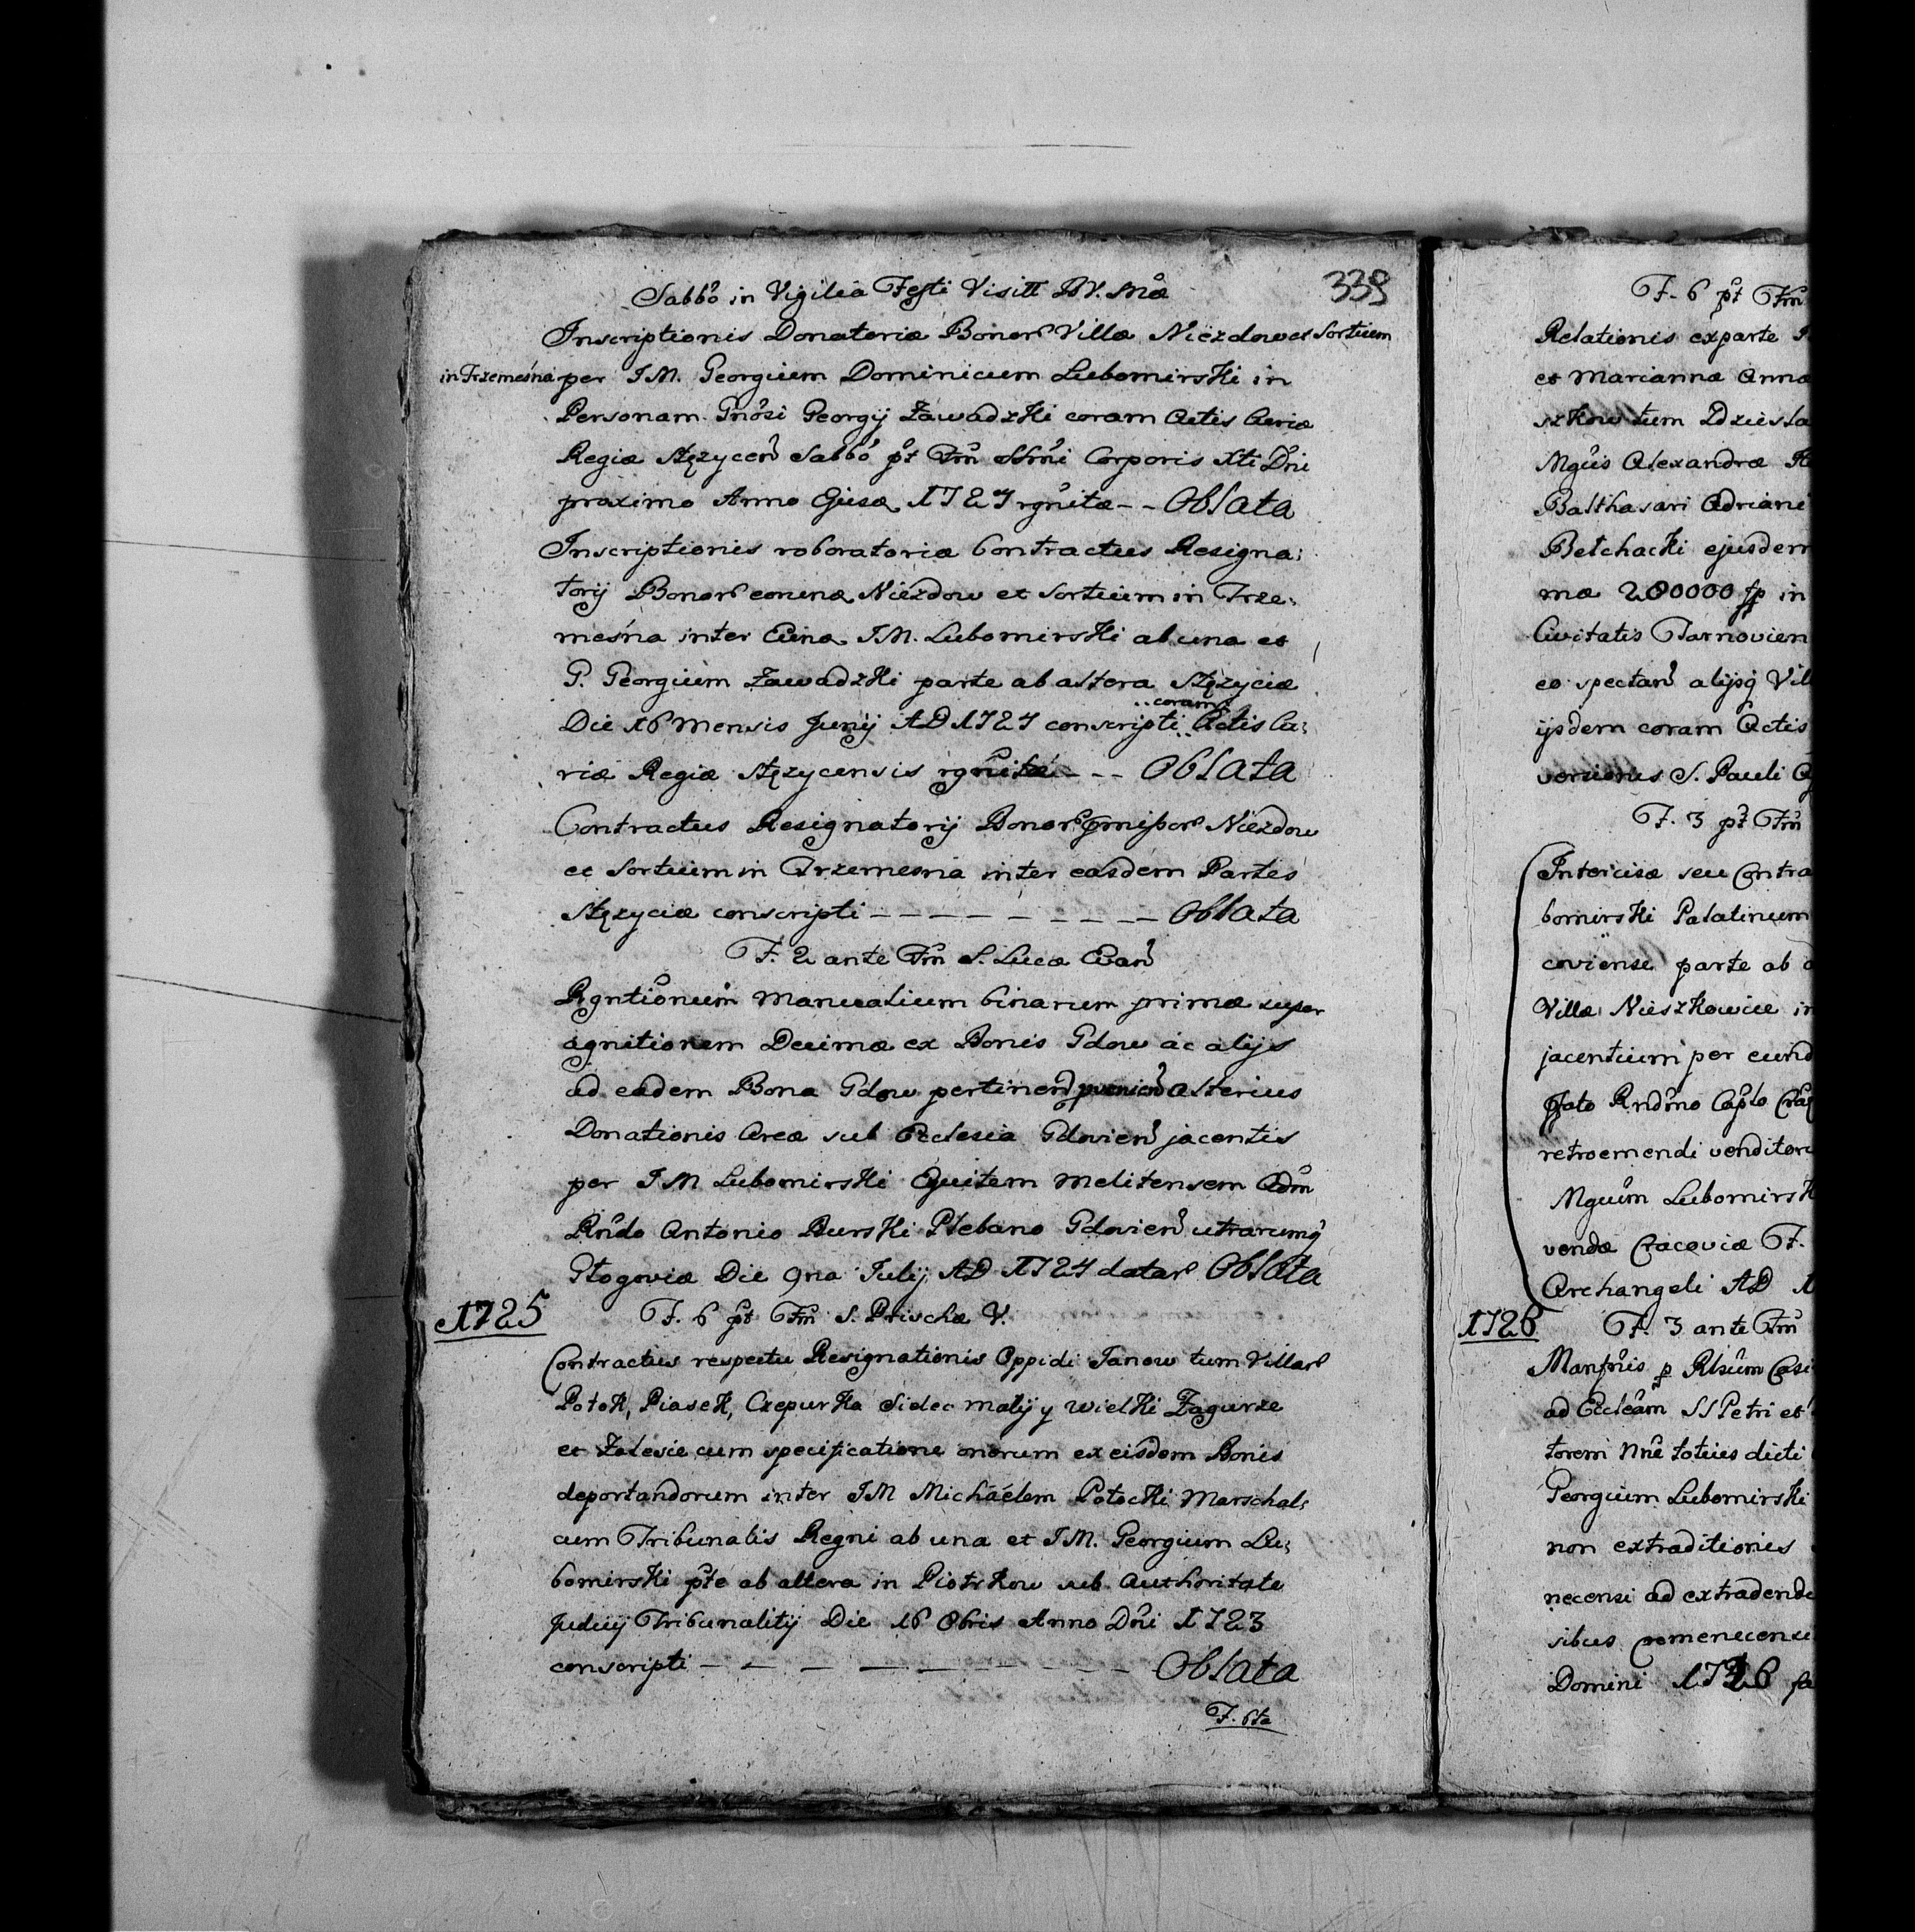 339
Sabbo in Vigilia Festi Visitt BV. Mæ
Inscriptionis Donatoriæ Bonor Villæ Niezdow et Sortium
in Trzemeśna per IM. Georgium Dominicum Lubomirski in
Personam Gnosi Georgij Zawadzki coram Actis Curiæ
Regiæ Stęzycen Sabbo pt Fm SSmi Corporis Xti Dni
proximo Anno Ejusq 1724 rgnitæ - - Oblata
Inscriptionis roboratoriæ Contractus Resigna:
torij Bonor eorunq Niezdow et Sortium in Trze:
meśna inter Eunq IM. Lubomirski ab una et
G. Georgium Zawadzki parte ab altera Stęzyciæ
Die 16 Mensis Junij AD 1724 conscripti coram Actis Cu:
riæ Regiæ Stęzycensis rgnitæ - - - Oblata
Contractus Resignatorij Bonor pmissor Niezdow
et Sortium in Trzemesna inter easdem Partes
Stęzyciæ conscripti - - - - - - - - - Oblata
F. 2 ante Fm S. Lucæ Evan
Rgntionum Manualium binarum primæ super
agnitionem Decimæ ex Bonis Gdow ac alijs
ad eadem Bona Gdow pertinen alterius
Donationis Areæ sub Ecclesia Gdovien jacentis
per IM Lubomirski Equitem Melitensem Adm
Rndo Antonio Burski Plebano Gdovien utrarumq
Głogoviæ Die 9na Julij AD 1724 datar Oblata
1725
F. 6 pt Fm S. Priscæ V.
Contractus respectu Resignationis Oppidi Janow tum Villar
Potok, Piasek, Czepurka Sidec małij y wielki Zagurze
et Zalesie cum specificatione onerum ex eisdem Bonis
deportandorum inter IM Michaëlem Potocki Marschal:
cum Tribunalis Regni ab una et IM. Georgium Lu:
bomirski pte ab altera in Piotrkow sub Authoritate
Judicij Tribunalitij Die 16 Obris Anno Dni 1723
conscripti - - - - - - - - - Oblata
F. 6ta
F. 6 pt Fm
Relationis ex parte
et Mariannæ Annæ
szkow tum
Mgcis Alexandræ
Balthasari Adriani
Bełchacki ejusdem
mæ 200000 fp in
Civitatis Tarnovien
eo spectan alijsq Vil
ijsdem coram Actis
versionis S. Pauli
F. 3 pt Fm
Intercisæ seu Contra
bomirski Palatinum
coviense parte ab
Villæ Nieszkowice in
jacentium per eund
pfato Rndmo Caplo
retroemendi venditor
Mgcum Lubomirsk
vendæ Cracoviæ F.
Archangeli AD 1
1726
F. 3 ante Fm
Casi
ad Eccleam SS Petri et
torem nne totius dicti
Georgium Lubomirski
non extraditionis
necensi ad extradende
sibus
Domini 1726